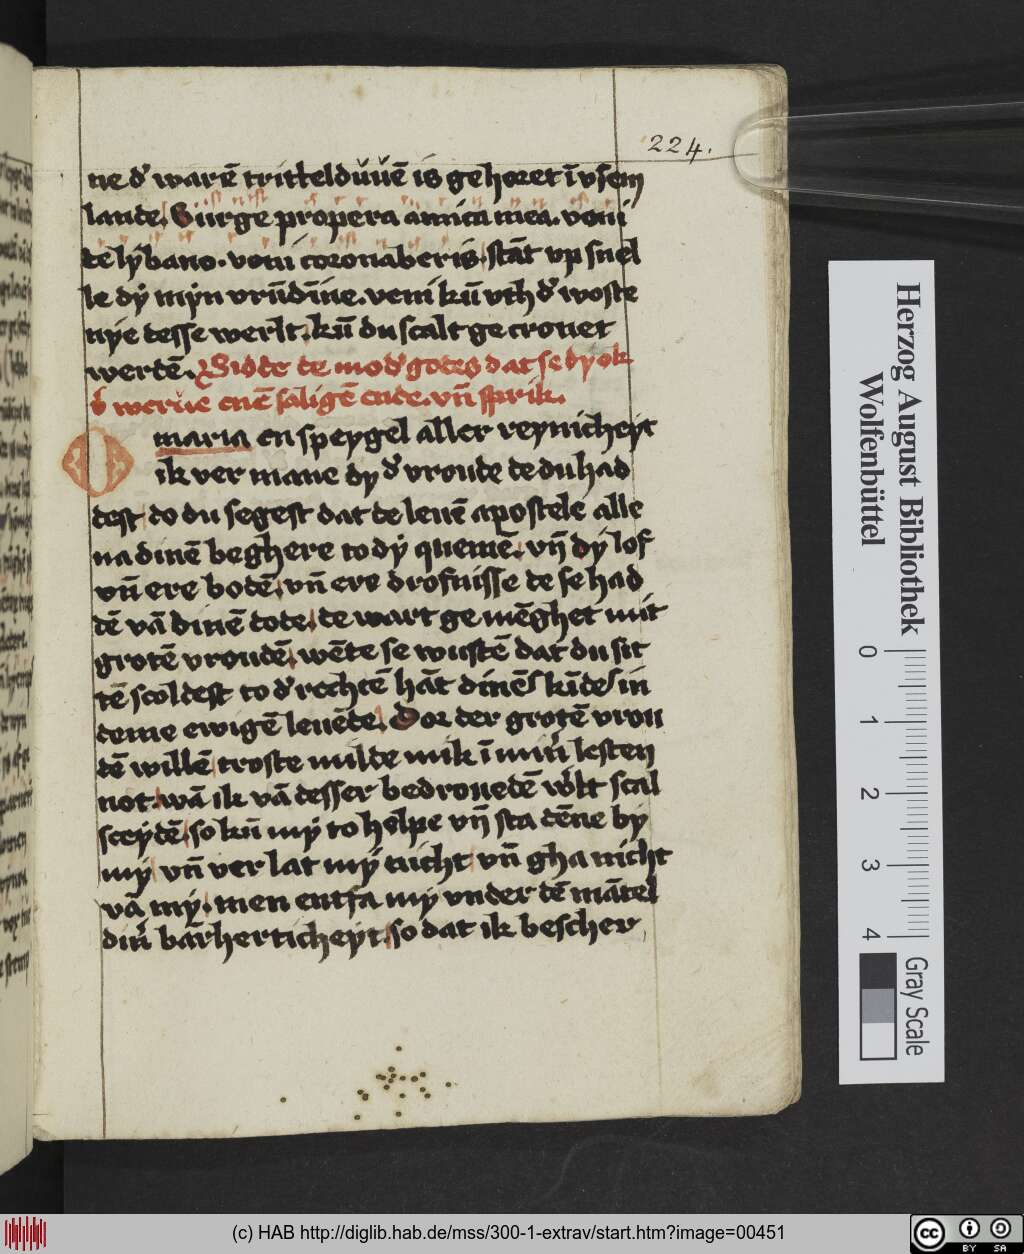 224.
ne d' warē tritteldůuē is gehoret ī vsem
lande. Surge propera amica mea. veni
de lybano. veni coronaberis. stāt vp snel
le dÿ mÿn vrūdīne. veni kū vth d' woste
nye desse werlt. kū du scalt ge cronet
werdē. Bidde de mod' godes dat se dy ok
v' werue enē saligē ende. vn̄ sprik.
O maria en speygel aller reynicheyt
ik ver mane dy d' vroude de du had
dest do du segest dat de leuē apostele alle
na dinē beghere to dÿ quemē. vn̄ dÿ lof
vn̄ ere bodē. vn̄ ere drofnisse de se had
dē vā dinē dode. de wart ge mēghet mit
grotē vroudē. wēte se wustē dat du sit
tē scoldest to d' rechtē hāt dinē kīdes in
deme ewigē leuēde. Dor der grotē vrou
dē willē troste milde mik ī min' lesten
not. wā ik vā desser bedrouedē w'lt scal
sceydē. so kū mÿ to helpe vn̄ sta dēne by
mÿ vn̄ ver lat mÿ nicht vn̄ gha nicht
vā mÿ. men entfa mÿ vnder dē mātel
din' bārherticheyt. so dat ik bescher
Herzog August Bibliothek
Wolfenbüttel
0 1 2 3 4
Gray Scale
(c) HAB http://diglib.hab.de/mss/300-1-extrav/start.htm?image=00451
cc BY SA